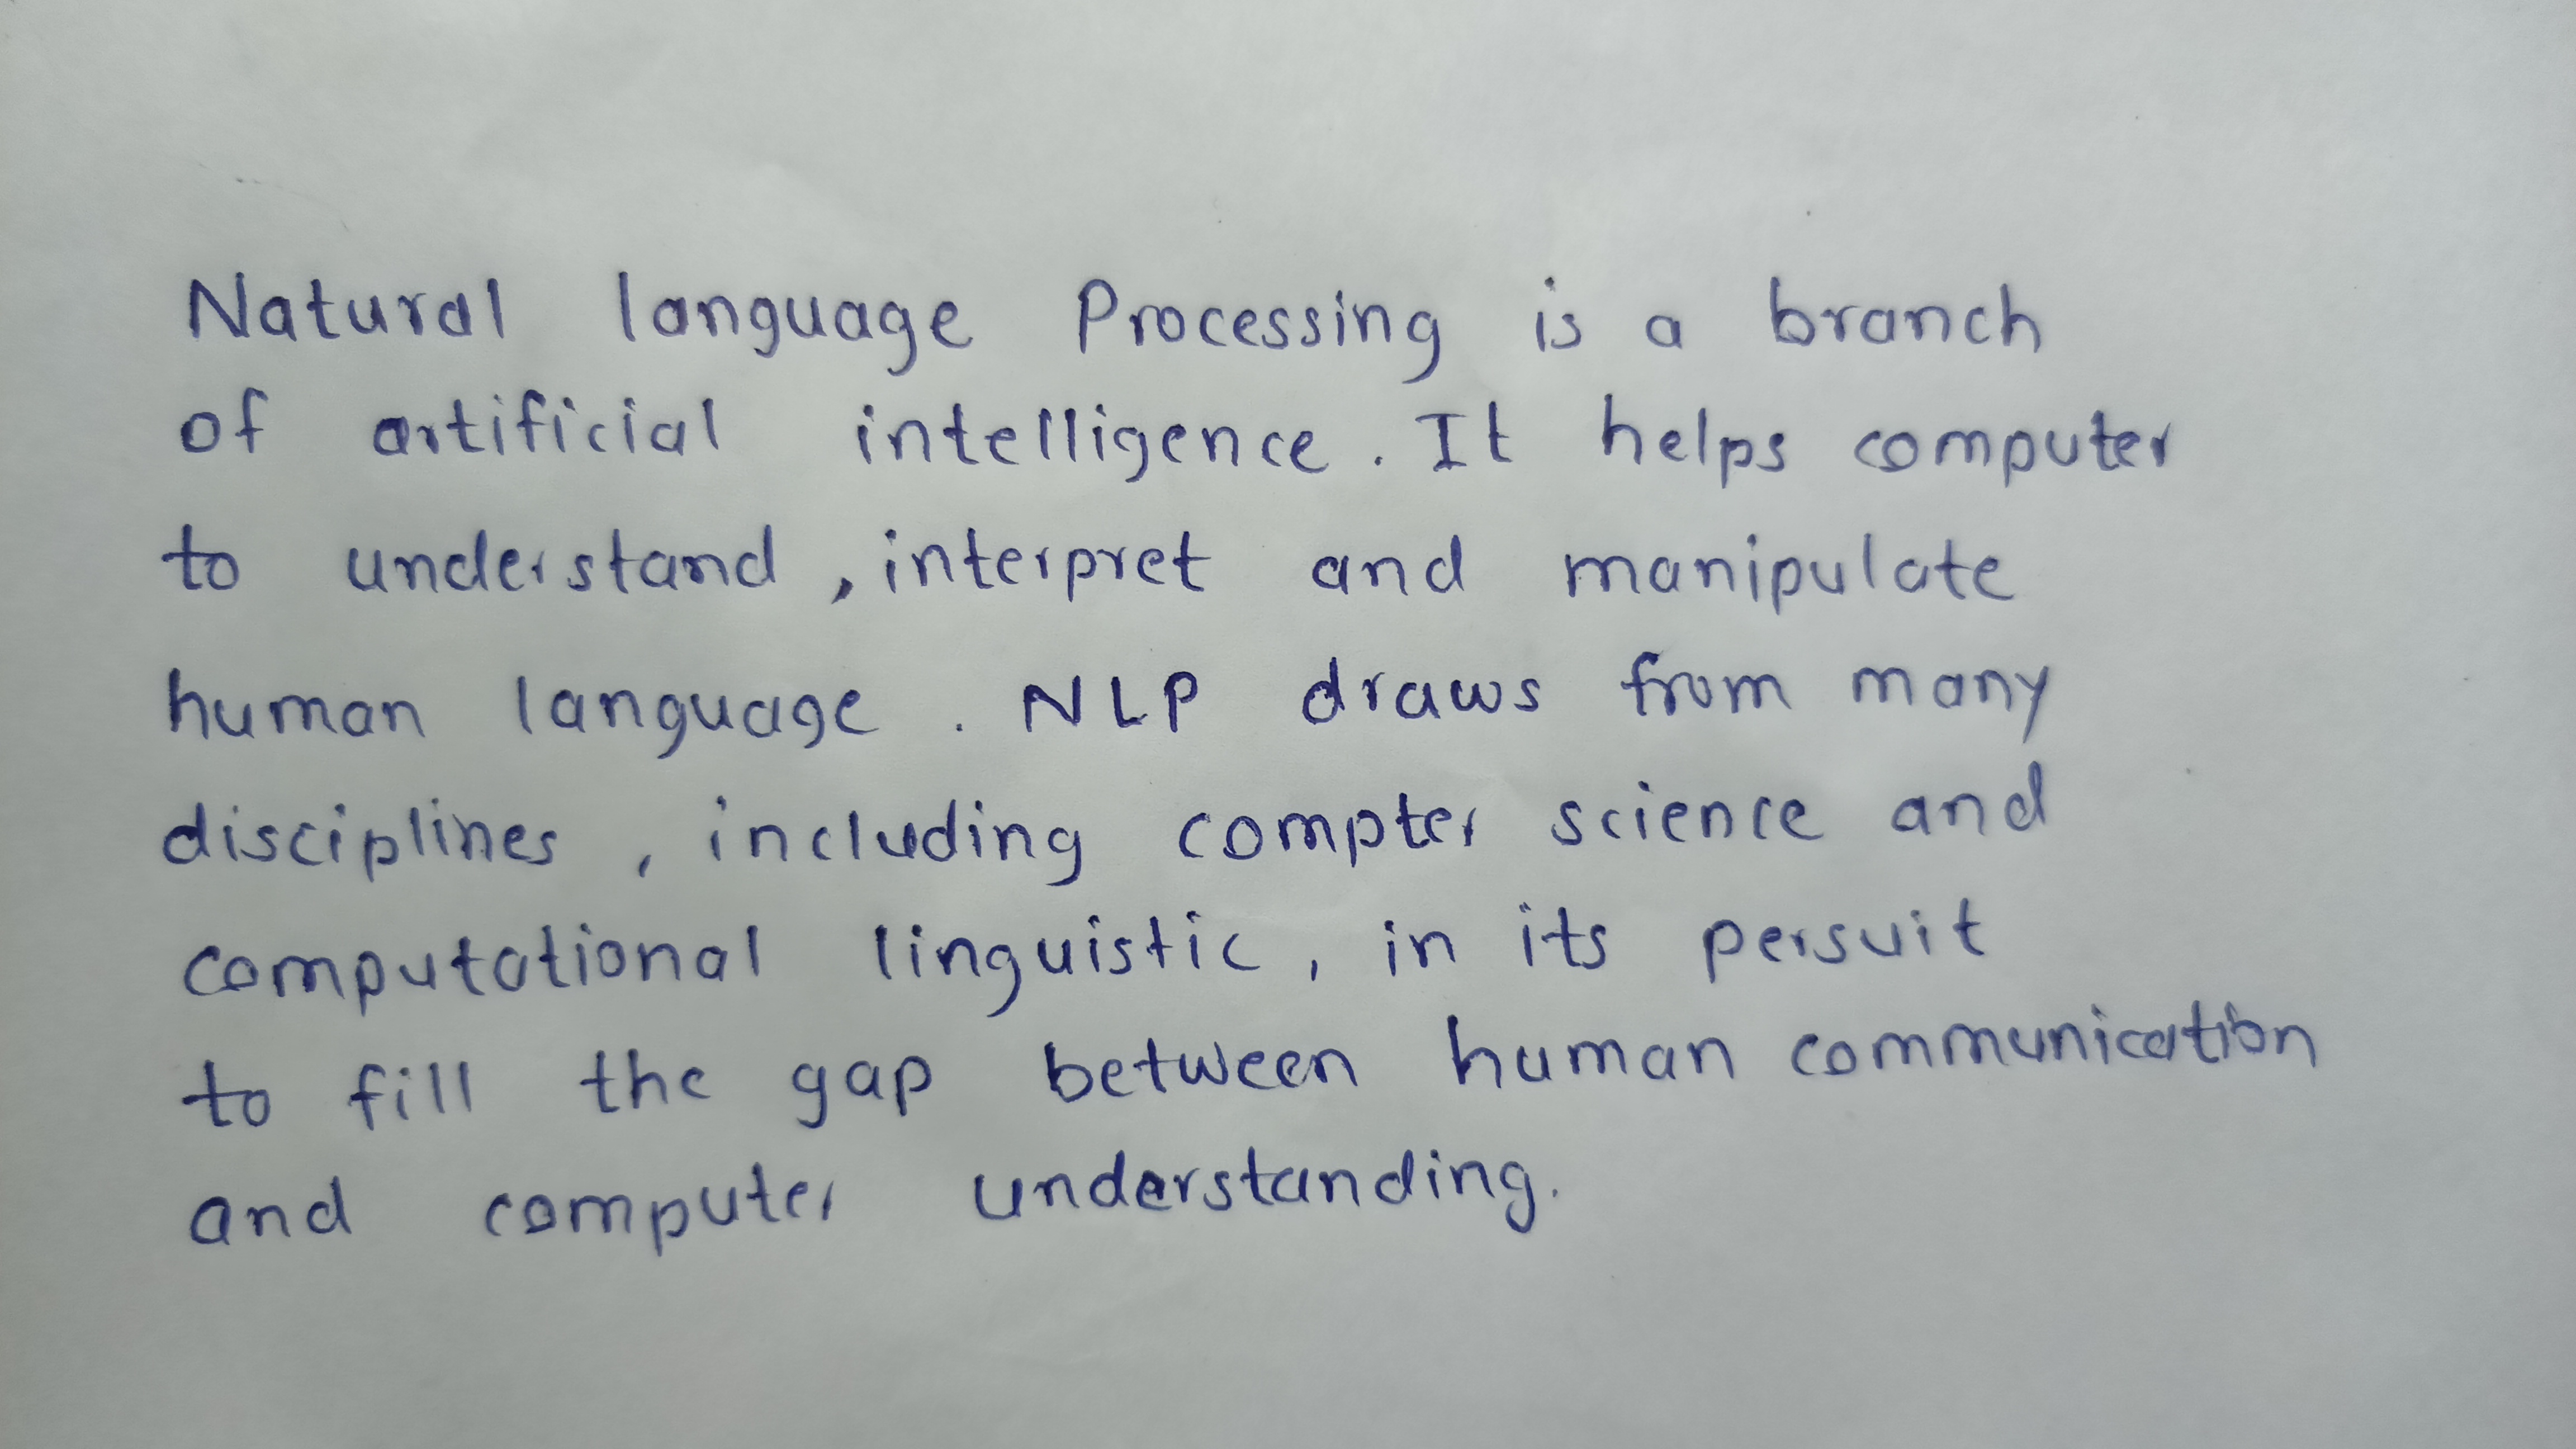 Natural language Processing is a branch
of artificial intelligence. It helps computer
to understand, interpret and manipulate
human language. NLP draws from many
disciplines, including compter science and
computational linguistic, in its persuit
to fill the gap between human communication
and computer understanding.